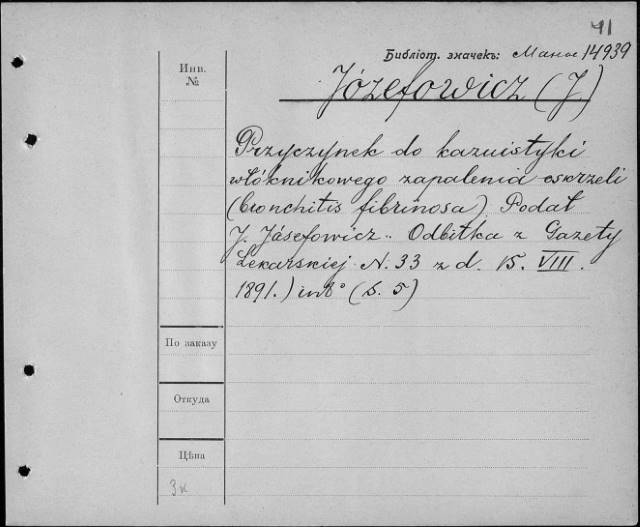 41
Библіот. значекъ: Мал 14939
Инв.
№
Józefowicz (J)
Przyczynek do kazuistyki
włóknikowego zapalenia oskrzeli
(bronchitis fibrinosa). Podał
J. Jósefowicz.. Odbitka z Gazety
Lekarskiej N. 33 z d. 15. VIII.
1891.) in 8° (S. 5)
По заказу
Откуда
Цѣна
3 к